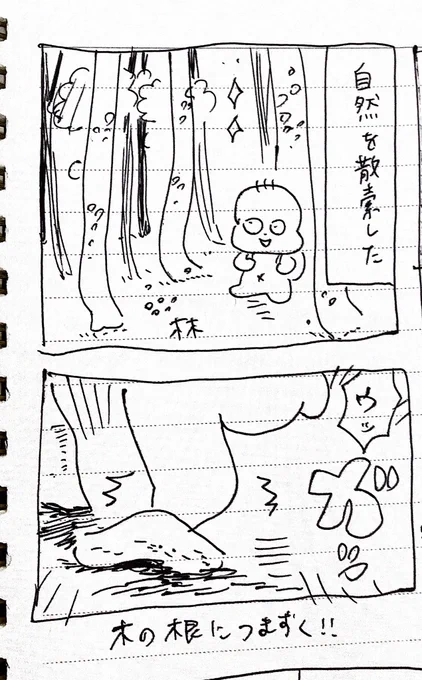 自然を散索した
林
ウッ
ガッ
木の根につまずく!!